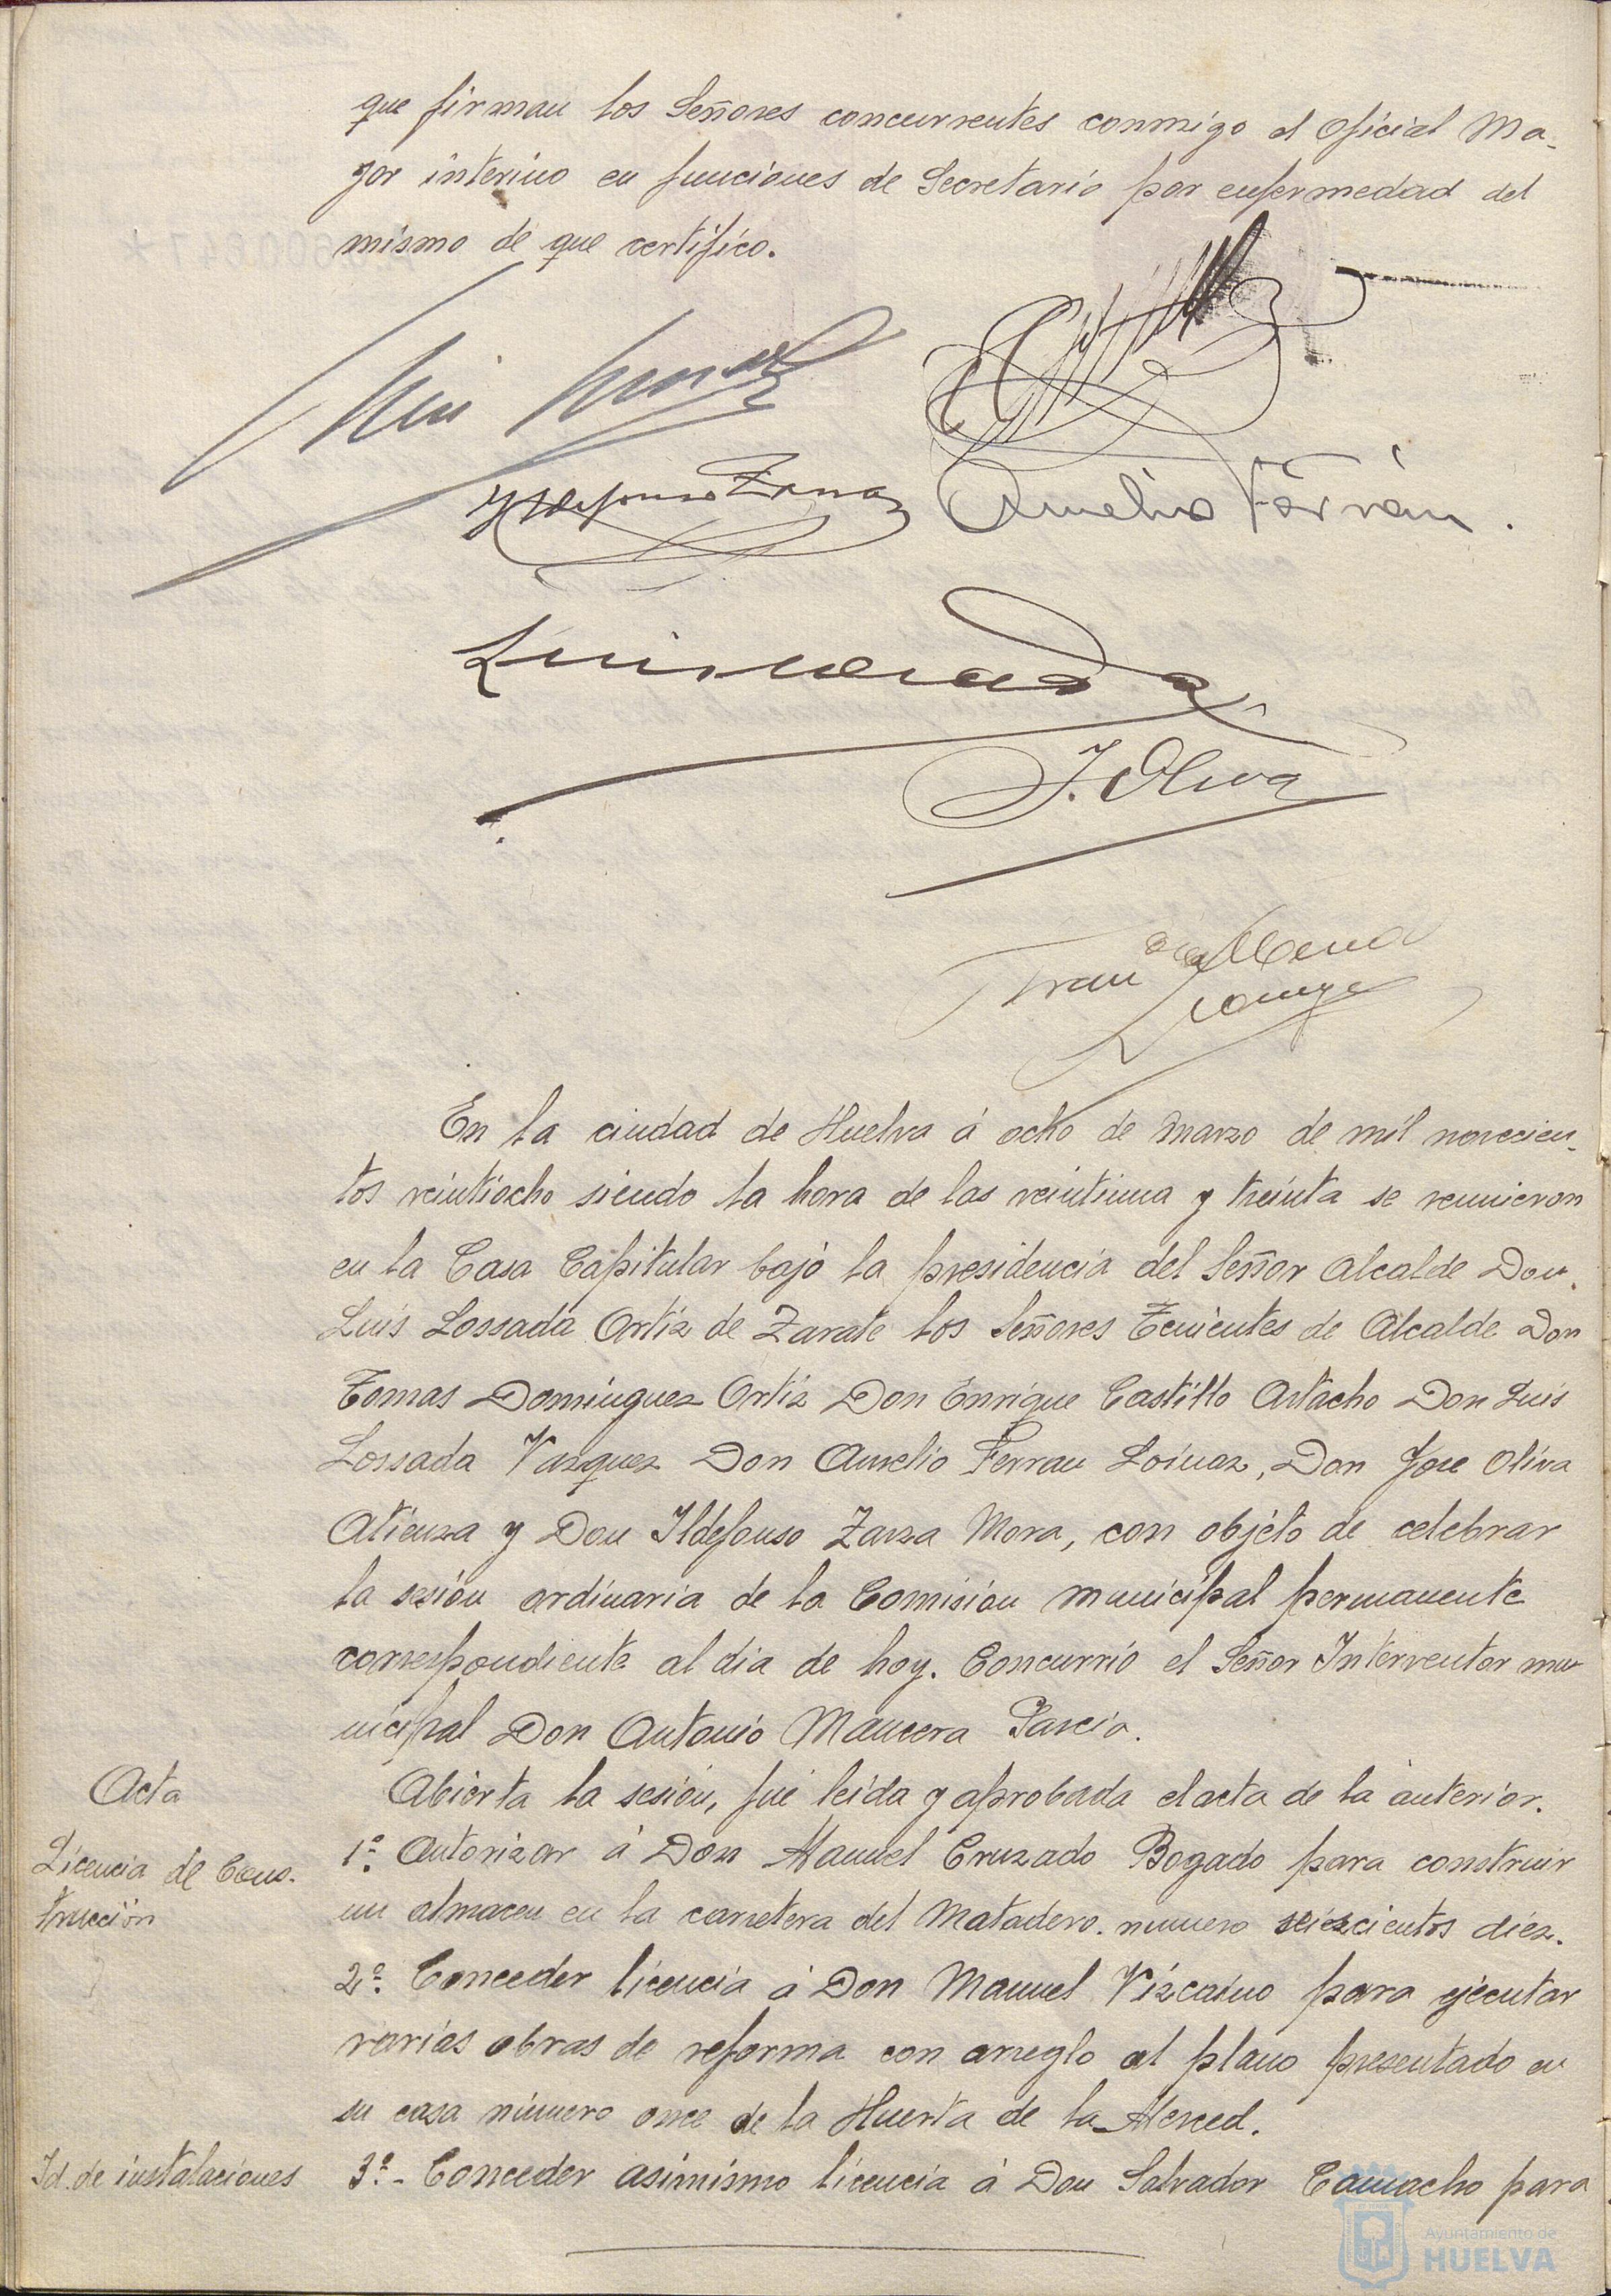 que firman los Señores concurrentes conmigo el Oficial Ma-
yor interino en funciones de Secretario por enfermedad del
mismo de que certifico.
Ildefonso Zarza
Aurelio Ferrán.
Luis Losada
J. Oliva
En la ciudad de Huelva á ocho de Marzo de mil novecien-
tos veintiocho siendo la hora de las veintiuna y treinta se reunieron
en la Casa Capitular bajo la presidencia del Señor Alcalde Don
Luis Lossada Ortiz de Zarate los Señores Tenientes de Alcalde Don
Tomas Dominguez Ortiz Don Enrique Castillo Artacho Don Luis
Lossada Vazquez Don Aurelio Ferran Loinaz, Don Jose Oliva
Atienza y Don Ildefonso Zarza Mora, con objeto de celebrar
la sesión ordinaria de la Comision municipal permanente
correspondiente al dia de hoy. Concurrió el Señor Interventor mu-
nicipal Don Antonio Mancera Garcia.
Acta
Abierta la sesión, fué leida y aprobada el acta de la anterior.
Licencia de Cons-
trucción
1º. Autorizar á Don Manuel Cruzado Bogado para construir
un almacen en la carretera del Matadero. numero seiscientos diez.
2º. Conceder licencia á Don Manuel Vizcaino para ejecutar
varias obras de reforma con arreglo al plano presentado en
su casa número once de la Huerta de la Merced.
Id. de instalaciones
3º- Conceder asimismo licencia á Don Salvador Camacho para
Ayuntamiento de
HUELVA